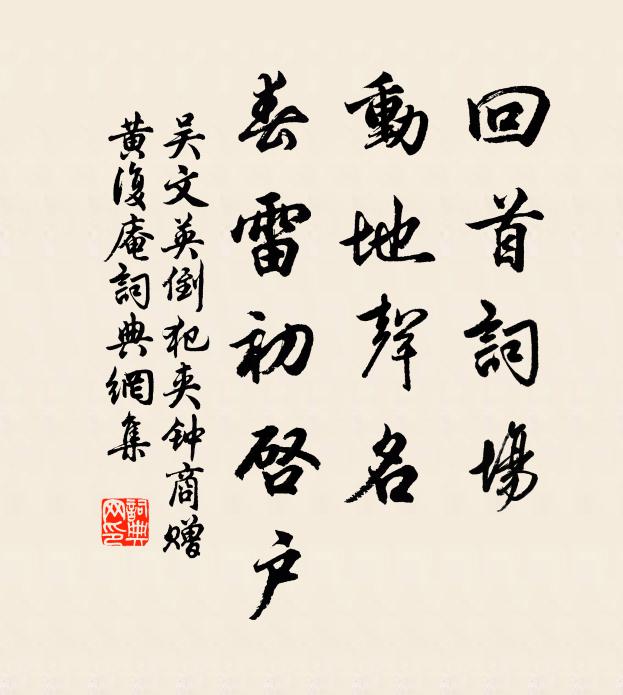 回首詞場
動地聲名
春雷初啓户
吴文英倒犯夹钟商赠
黄復庵詞典網集
詞典网印